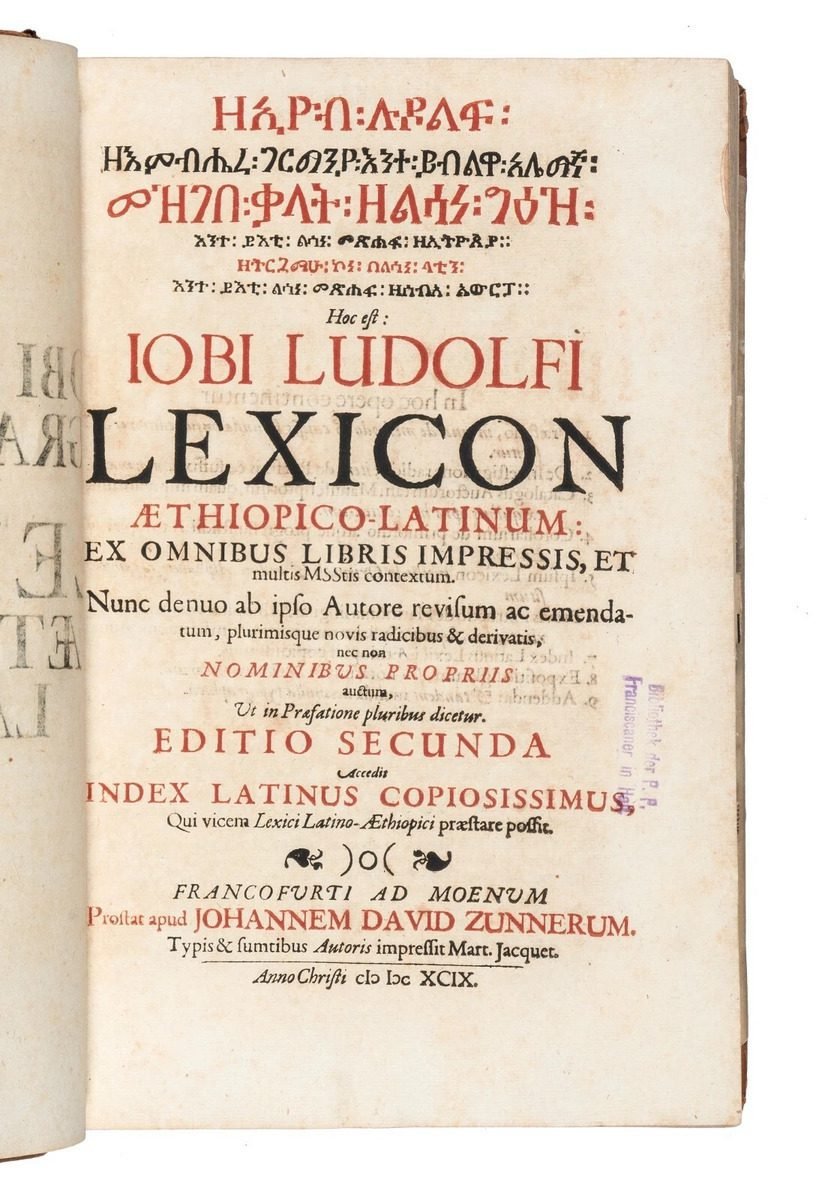 ዘኢዮብ፡ሉዶልፍ፡
ዘእምብሔረ፡ገርማንያ፡እንተ፡ይብልዋ፡አሌማኛ፡
መዝገበ፡ቃላት፡ዘልሳነ፡ግዕዝ፡
እንተ፡ ይእቲ፡ ልሳነ፡ መጽሐፍ፡ ዘኢትዮጵያ፡፡
ዘትርጓሜሁ፡ ኮነ፡ በልሳነ፡ ላቲን፡
እንተ፡ ይእቲ፡ ልሳነ፡ መጽሐፍ፡ ዘሰብአ፡ ኤውሮፓ፡፡
Hoc eſt :
IOBI LUDOLFI
LEXICON
ÆTHIOPICO-LATINUM:
EX OMNIBUS LIBRIS IMPRESSIS, ET
multis MSStis contextum.
Nunc denuo ab ipſo Autore reviſum ac emenda-
tum, plurimisque novis radicibus & derivatis,
nec non
NOMINIBUS PROPRIIS
auctum,
Ut in Præfatione pluribus dicetur.
EDITIO SECUNDA
Accedit
INDEX LATINUS COPIOSISSIMUS,
Qui vicem Lexici Latino-Æthiopici præſtare poſſit.
)o(
FRANCOFURTI AD MOENUM
Proſtat apud JOHANNEM DAVID ZUNNERUM.
Typis & ſumtibus Autoris impreſſit Mart. Jacquet.
Anno Chriſti cIↄ Iↄc XCIX.
Bibliothek der P. P.
Franciscaner in